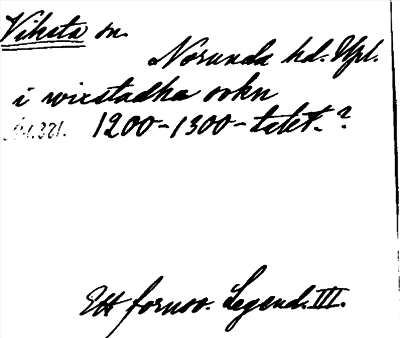 Viksta sn.
Norunda hd. Upl.
i wixstadha sokn
1200-1300-talet.?
Ett fornsv. Legend. III.